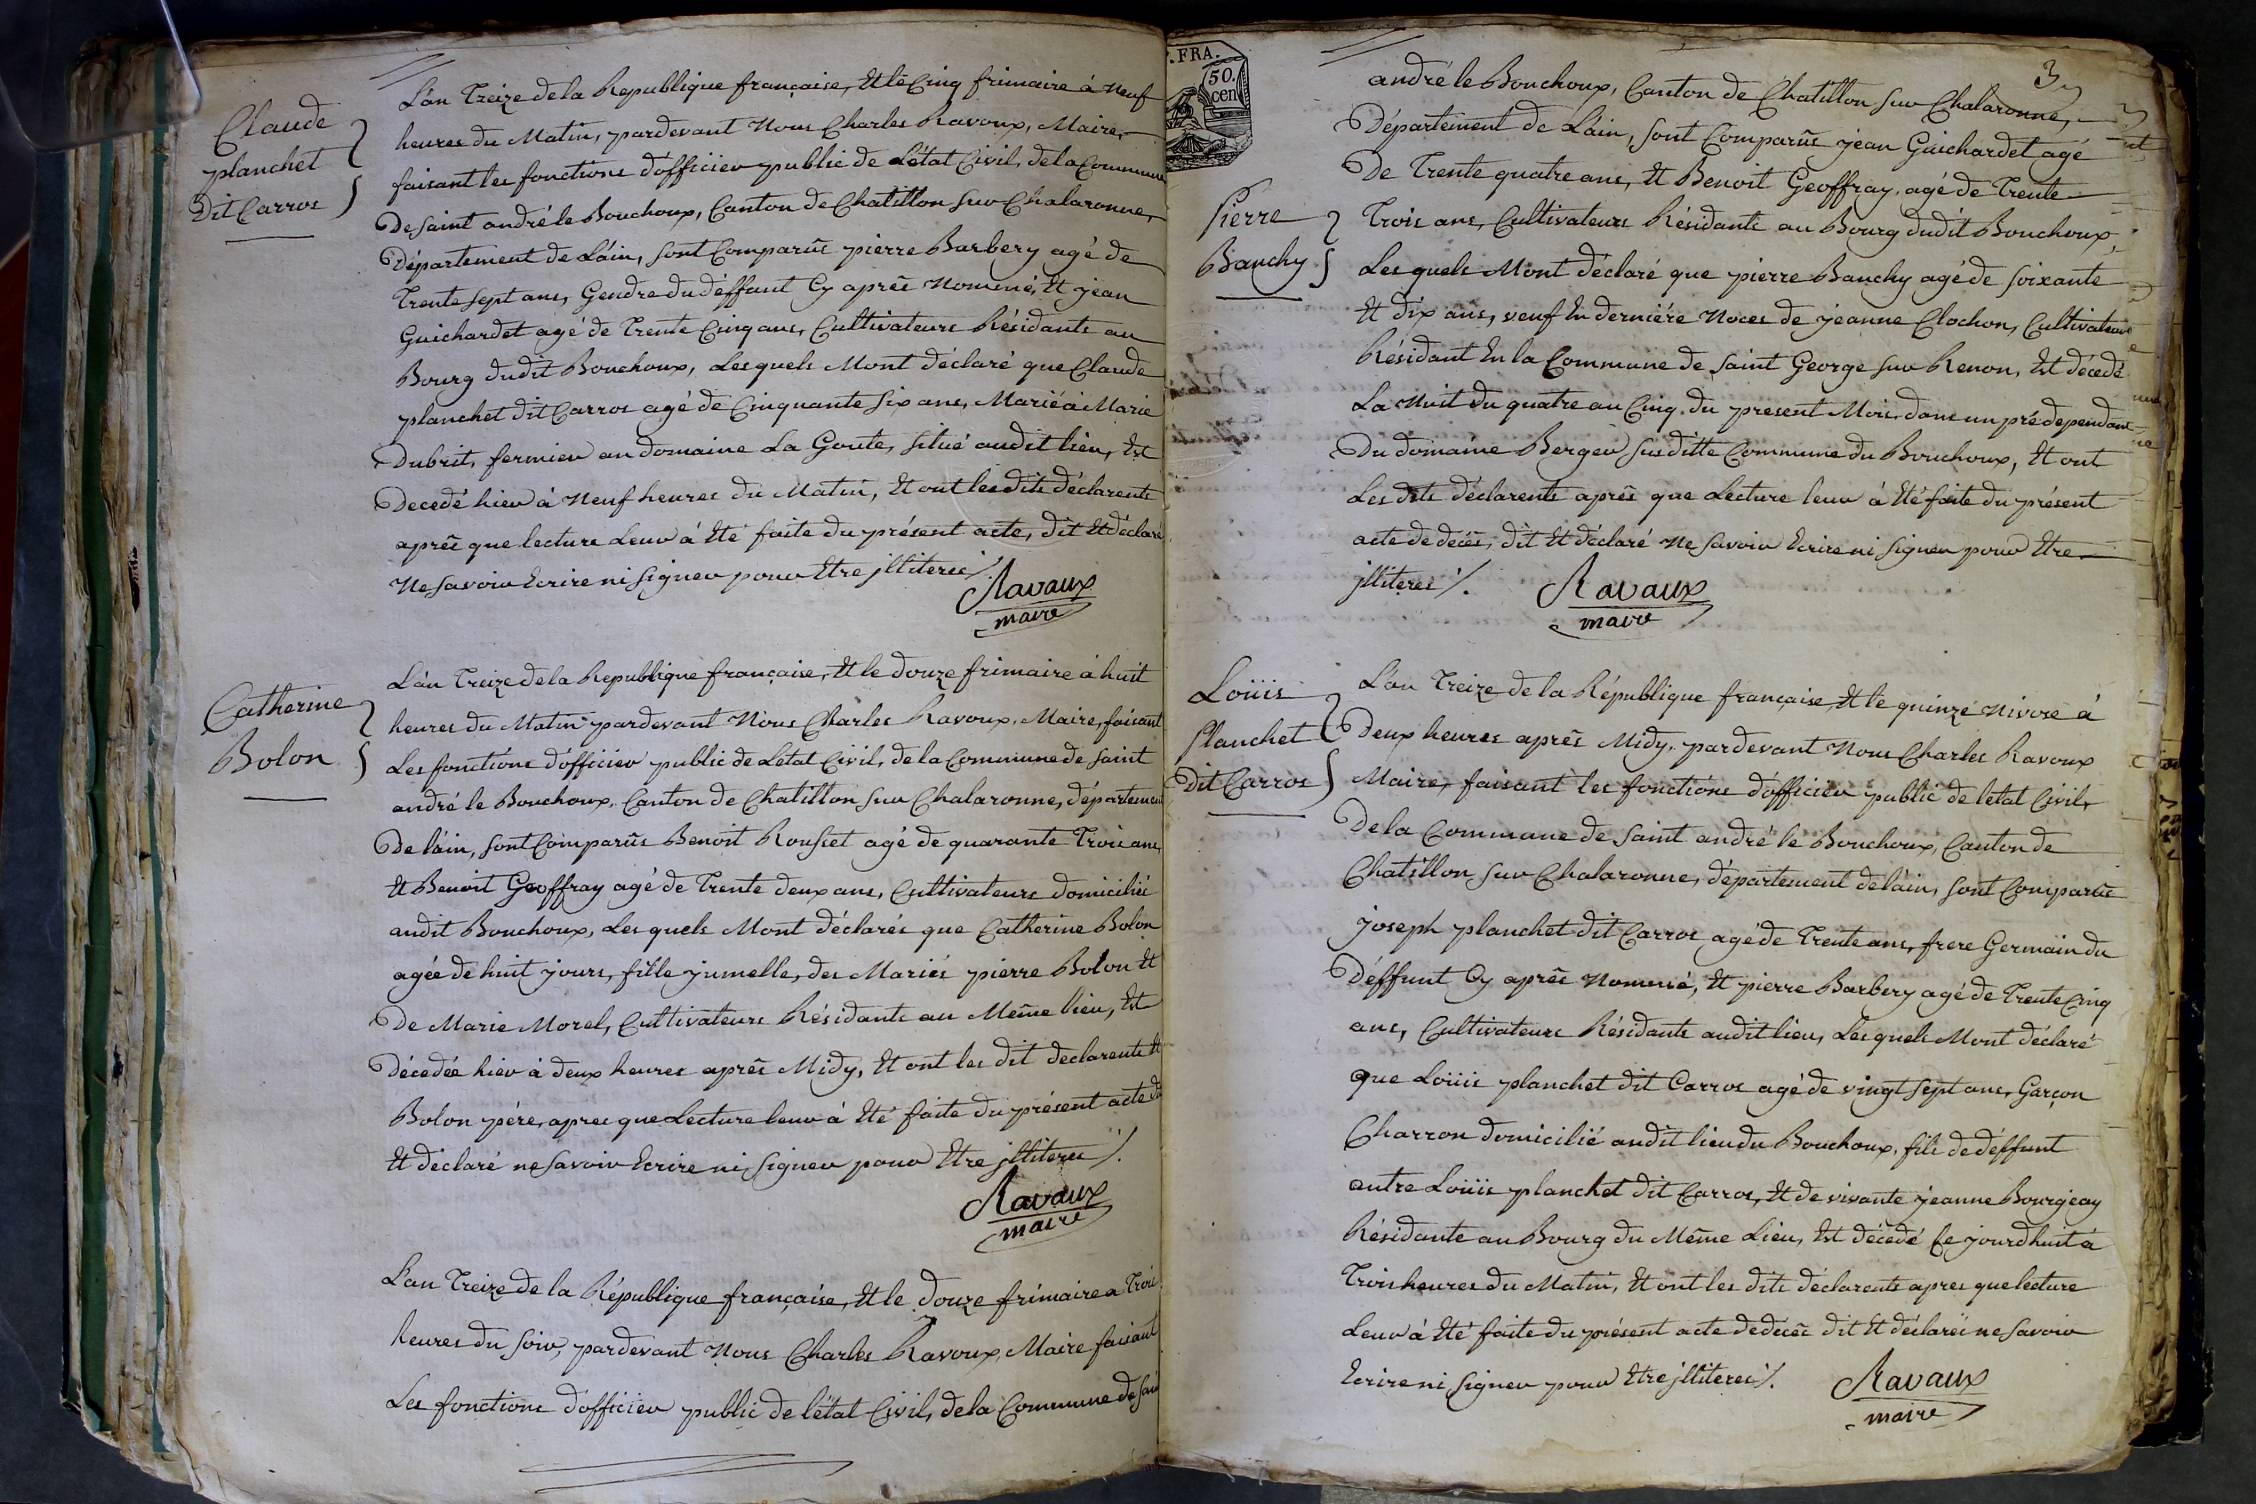 Claude
planchet
dit Carros
L'an Treize de la Republique française, Et le Cinq frimaire à Neuf
heures du Matin, pardevant Nous Charles Ravoux, Maire,
faisant les fonctions d'officier public de L'état Civil, de la Commune
De saint andré le Bouchoux, Canton de Chatillon sur Chalaronne,
Département de L'áin, sont Comparûs pierre Barbery agé de
Trente sept ans, Gendre du déffunt Cy aprês Nommé, Et jean
Guichardet agé de Trente Cinq ans, Cultivateurs Résidants au
Bourg dudit Bouchoux, Lesquels Mont déclaré que Claude
planchet dit Carros agé de Cinquante Six ans, Marié à Marie
Dubrit, fermier au domaine La Goute, situé audit lieu, Est
Decedé hier à Neuf heures du Matin, Et ont les dits déclarents
aprês que lecture Leur à Eté faite du présent acte, dit Et déclaré
Ne savoir Ecrire ni signer pour Etre jlliterés /.
Ravaux
maire
Catherine
Bolon
L'án Treize de la Republique française, Et le douze frimaire à huit
heures du Matin pardevant Nous Charles Ravoux, Maire, faisant
Les fonctions d'officier public de L'état Civil, de la Commune de saint
andré le Bouchoux, Canton de Chatillon sur Chalaronne, département
De l'áin, sont Comparûs Benoit Rousset agé de quarante Trois ans,
Et Benoit Geoffray agé de Trente deux ans, Cultivateurs domiciliés
audit Bouchoux, Les quels Mont déclarés que Catherine Bolon
agée de huit jours, fille jumelle, des Mariés pierre Bolon Et
De Marie Morel, Cultivateurs Résidants au Même lieu, Est
Décedée hier à deux heures aprês Midy, Et ont les dit declarents Et
Bolon pére, apres que Lecture leur à Eté faite du présent acte dit
Et déclaré ne savoir Ecrire ni signer pour Etre jlliterés /.
Ravaux
maire
L'an Treize de la République française, Et le douze frimaire a Trois
heures du soir, pardevant Nous Charles Ravoux, Maire faisant
Les fonctions d'officier public de l'état Civil, de la Commune de Sai
. FRA.
50.
cen
3
andré le Bouchoux, Canton de Chatillon sur Chalaronne,
Département de L'áin, sont Comparûs jean Guichardet agé
De Trente quatre ans, Et Benoit Geoffray, agé de Trente
Pierre
Banchy
Trois ans, Cultivateurs Résidants au Bourg dudit Bouchoux,
Les quels Mont déclaré que pierre Banchy agé de soixante
Et dix ans, veuf En derniére Noces de jeanne Clochon, Cultivateur
Résidant En la Commune de saint George sur Renon, Est décedé
La Nuit du quatre au Cinq du present Mois, dans un pré dependant
Du domaine Berger susditte Commune du Bouchoux, Et ont
Les dits déclarents aprês que Lecture leur à Eté faite du présent
acte de décês, dit Et déclaré Ne savoir Ecrire ni signer pour Etre
jlliterés /.
Ravaux
maire
Loüis
Planchet
Dit Carros
L'an Treize de la République française, Et le quinze Nivose à
Deux heures aprês Midy, pardevant Nous Charles Ravoux
Maire, faisant les fonctions d'officier public de l'état Civil,
De la Commune de saint andré le Bouchoux, Canton de
Chatillon sur Chalaronne, département de l'áin, sont Comparûs
joseph planchet dit Carros agé de Trente ans, frere Germain du
Déffunt Cy aprês Nommé, Et pierre Barbery agé de Trente Cinq
ans, Cultivateurs Résidants audit lieu, Lesquels Mont déclaré
que Loüis planchet dit Carros agé de vingt sept ans, Garçon
Charron domicilié audit lieu du Bouchoux, fils de déffunt
autre Loüis planchet dit Carros, Et de vivante jeanne Bourgeay
Résidante au Bourg du Même Lieu, Est décédé Ce jourdhuit à
Trois heures du Matin, Et ont les dits déclarents apres que lecture
Leur à Eté faite du présent acte de decês dit Et déclarés ne savoir
Ecrire ni signer pour Etre jlliterés /.
Ravaux
maire